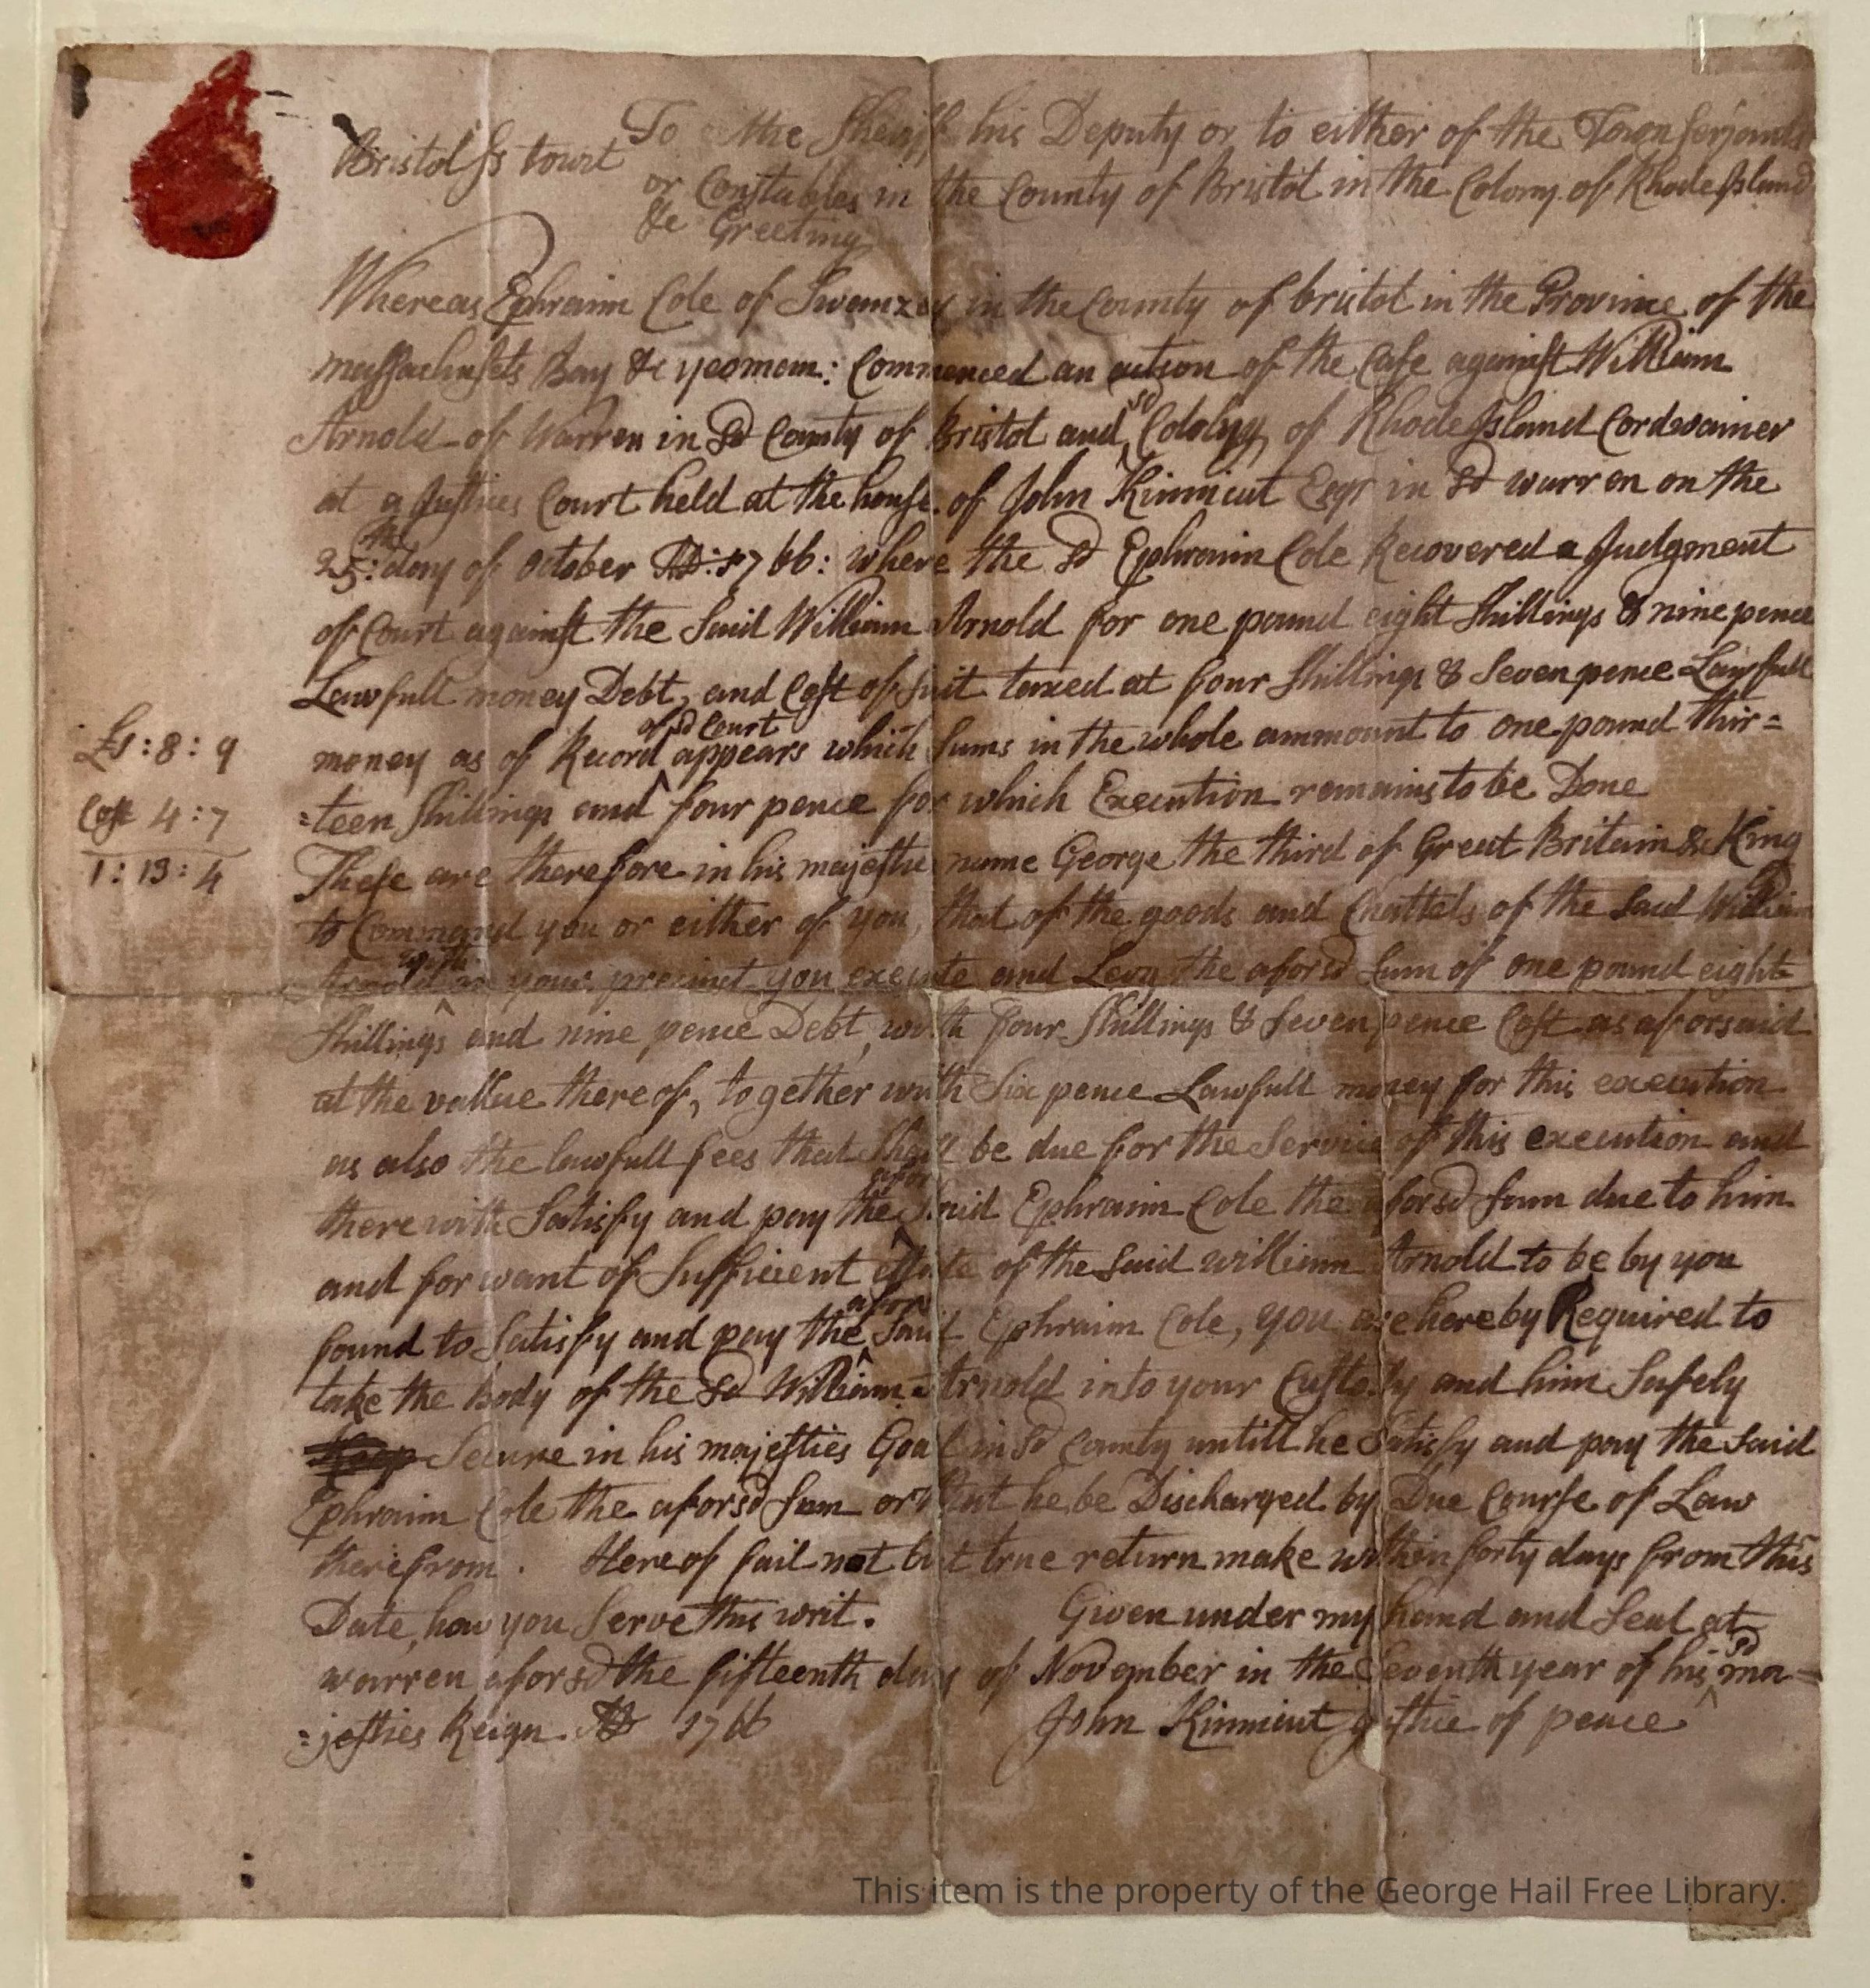 Bristol ss Court To the Sheriff his Deputy or to either of the Town serjants
or Constables in the County of Bristol in the Colony of Rhode Island
&c Greeting
Whereas Ephraim Cole of Swanzey in the County of bristol in the Province of the
massachusets Bay &c yeoman: Commenced an action of the Case against William
Arnold of Warren in sd County of Bristol and sd Colony of Rhode Island Cordwainer
at a Justices Court held at the house of John Kinnicut Esqr in sd warren on the
25th: day of October AD: 1766: where the sd Ephraim Cole Recovered a Judgment
of Court against the Said William Arnold for one pound eight Shillings & nine pence
Lawfull money Debt, and Cost of suit taxed at four Shillings & Seven pence Lawfull
money as of Record of sd Court appears which Sums in the whole ammount to one pound thir=
£1:8:9
=teen Shillings and four pence for which Execution remains to be Done
Cost 4:7
These are therefore in his majestie name George the third of Great Britain &c King
1:13:4
to Command you or either of you, that of the goods and Chattels of the said William
Arnold within your precinct you execute and Levy the aforsd Sum of one pound eight
Shillings and nine pence Debt, with four Shillings & Seven pence Cost as aforsaid
at the vallue thereof, together with Six pence Lawfull money for this execution
as also the lawfull fees that Shall be due for the Service of this execution and
therewith Satisfy and pay the afor Said Ephraim Cole the aforsd Sum due to him
and for want of Sufficient estate of the Said william Arnold to be by you
found to Satisfy and pay the afor Said Ephraim Cole, you are hereby Required to
take the body of the sd William Arnold into your Custody and him Safely
Keep Secure in his majesties Goal in sd County untill he Satisfy and pay the Said
Ephraim Cole the aforsd Sum or that he be Discharged by Due Course of Law
therefrom. Hereof fail not but true return make within forty days from this
Date, how you Serve this writ. Given under my hand and Seal at
warren aforsd the fifteenth day of November in the Seventh year of his sd ma=
=jesties Reign AD 1766 John Kinnicut justice of peace
This item is the property of the George Hail Free Library.